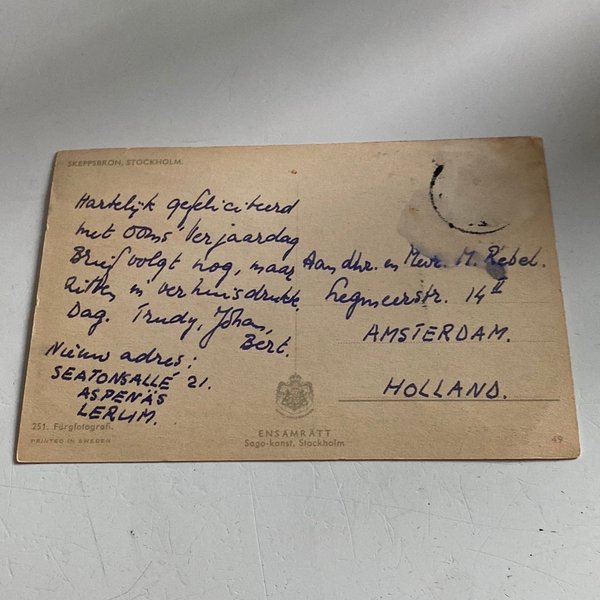 SKEPPSBRON, STOCKHOLM.
Hartelijk gefeliciteerd
met ooms verjaardag
Brief volgt nog, maar
zitten in verhuisdrukte.
Dag. Trudy, Johan,
Bert.
Nieuw adres:
SEATONSALLÉ 21.
ASPENÄS
LERUM.
251. Färgfotografi.
PRINTED IN SWEDEN
Aan dhr. en Mevr. M. Rebel.
Legmeerstr. 14 II
AMSTERDAM.
HOLLAND.
ENSAMRÄTT
Sago-konst, Stockholm
49